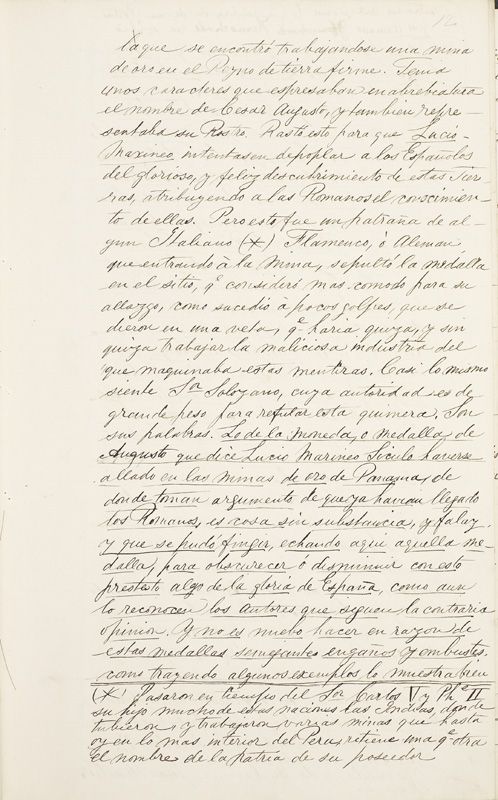 12
la que se encontró trabajandose una mina
de oro en el Reyno de tierra firme. Tenia
unos caracteres que espresaban en abrebiatura
el nombre de Cesar Augusto, y tambien repre-
sentaba su Rostro. Bastó esto para que Lucio
Marineo intentasen depoplar a los Españoles
del glorioso, y feliz descubrimiento de estas Tier-
ras, atribuyendo a los Romanos el conocimien-
to de ellas. Pero esto fue un patraña de al-
gun Italiano (*) Flamenco, ò Aleman
que entrando à la mina, sepultó la medalla
en el sitio, q.e consideró mas comodo para su
allazgo, como sucedió à pocos golpes, que se
dieron en una veta, q.e haria quiza, y sin
quiza trabajar la maliciosa industria del
que maquinaba estas mentiras. Casi lo mismo
siente S.or Solozano, cuya autoridad es de
grande peso para refutar esta quimera. Son
sus palabras. Lo de la moneda, o medalla, de
Augusto que dice Lucio Marineo Siculo haverse
allado en las minas de oro de Panama, de
donde toman argumento de que ya havian llegado
los Romanos, es cosa sin substancia, y falaz.
y que se pudó fingir, echando aqui aquella me-
dalla, para obscurecer ó disminuir con esto
pretesto algo de la gloria de España, como aun
lo reconocen los autores que siguen la contraria
opinion. Y no es nuebo hacer en razon de
estas medallas semejantes engaños y embustes.
como trayendo algunos exemplos lo muestra bien
(*) Pasaron en tiempo del S.or Carlos V y Ph.e II
su hijo mucho de estas naciones las Indias, donde
tubieron, y trabajaron varias minas que hasta
oy en lo mas interior del Peru, retiene una q.e otra
el nombre de la patria de su poseedor